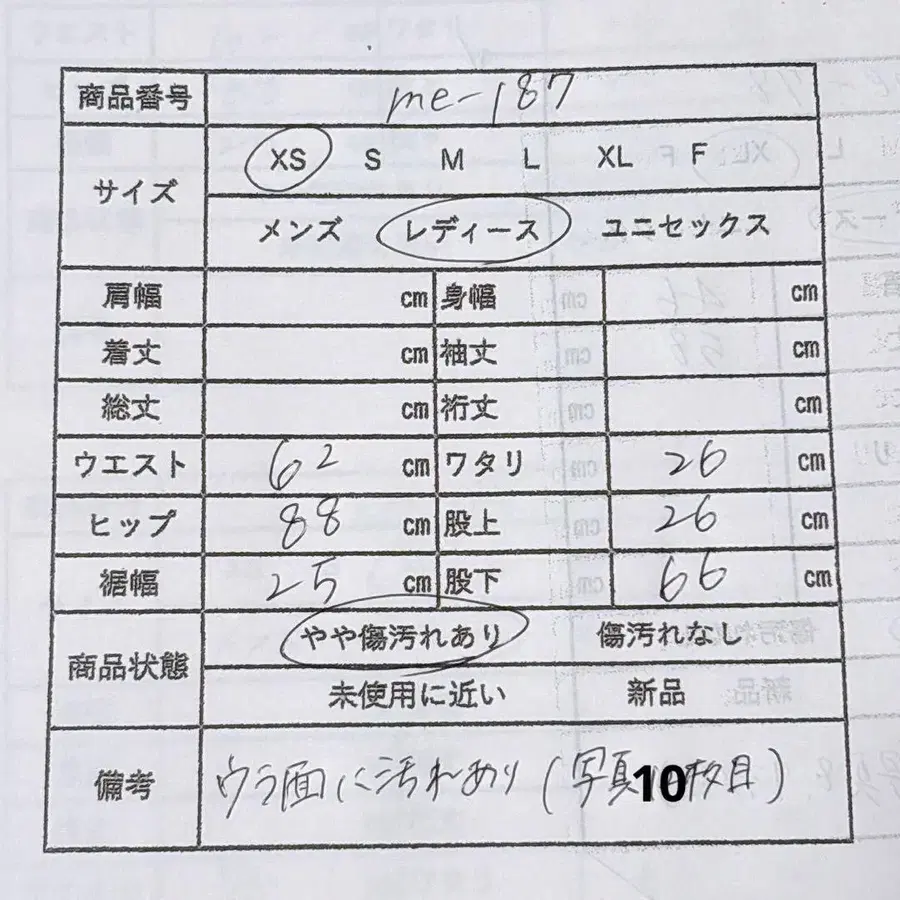 商品番号 me-187
サイズ XS S M L XL F
メンズ レディース ユニセックス
肩幅 cm 身幅 cm
着丈 cm 袖丈 cm
総丈 cm 裄丈 cm
ウエスト 62 cm ワタリ 26 cm
ヒップ 88 cm 股上 26 cm
裾幅 25 cm 股下 66 cm
商品状態 やや傷汚れあり 傷汚れなし
未使用に近い 新品
備考 ウラ面に汚れあり(写真10枚目)